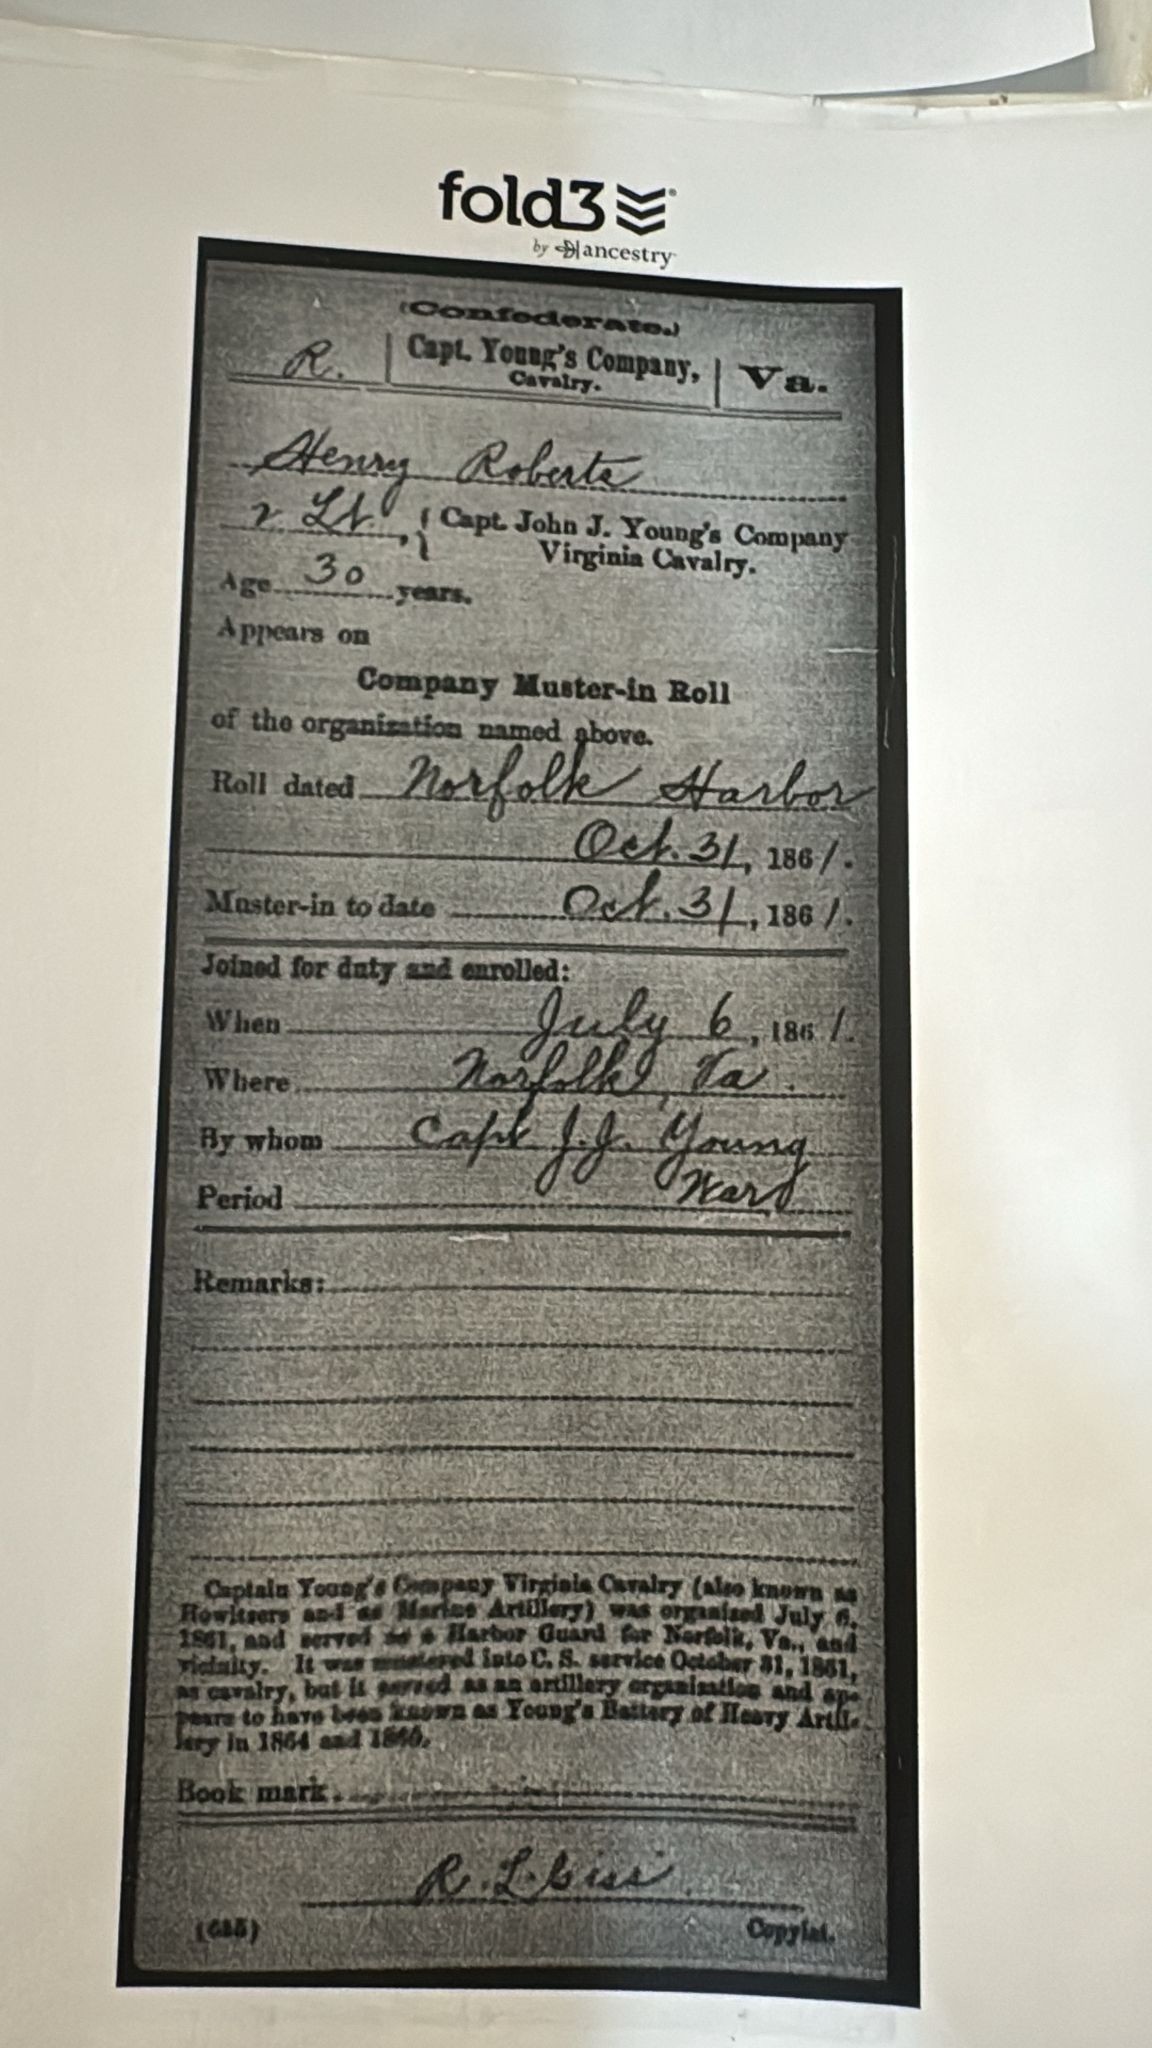 fold3
by ancestry
(Confederate.)
R. | Capt. Young's Company, Cavalry. | Va.
Henry Roberts
2 Lt, { Capt. John J. Young's Company
Virginia Cavalry.
Age 30 years.
Appears on
Company Muster-in Roll
of the organization named above.
Roll dated Norfolk Harbor
Oct. 31, 1861.
Muster-in to date Oct. 31, 1861.
Joined for duty and enrolled:
When July 6, 1861.
Where Norfolk, Va.
By whom Capt J.J. Young
Period War
Remarks:
Captain Young's Company Virginia Cavalry (also known as
Howitzers and as Marine Artillery) was organized July 6,
1861, and served as a Harbor Guard for Norfolk, Va., and
vicinity. It was mustered into C. S. service October 31, 1861,
as cavalry, but it served as an artillery organization and ap-
pears to have been known as Young's Battery of Heavy Artil-
lery in 1864 and 1865.
Book mark
R. L.
Copyist.